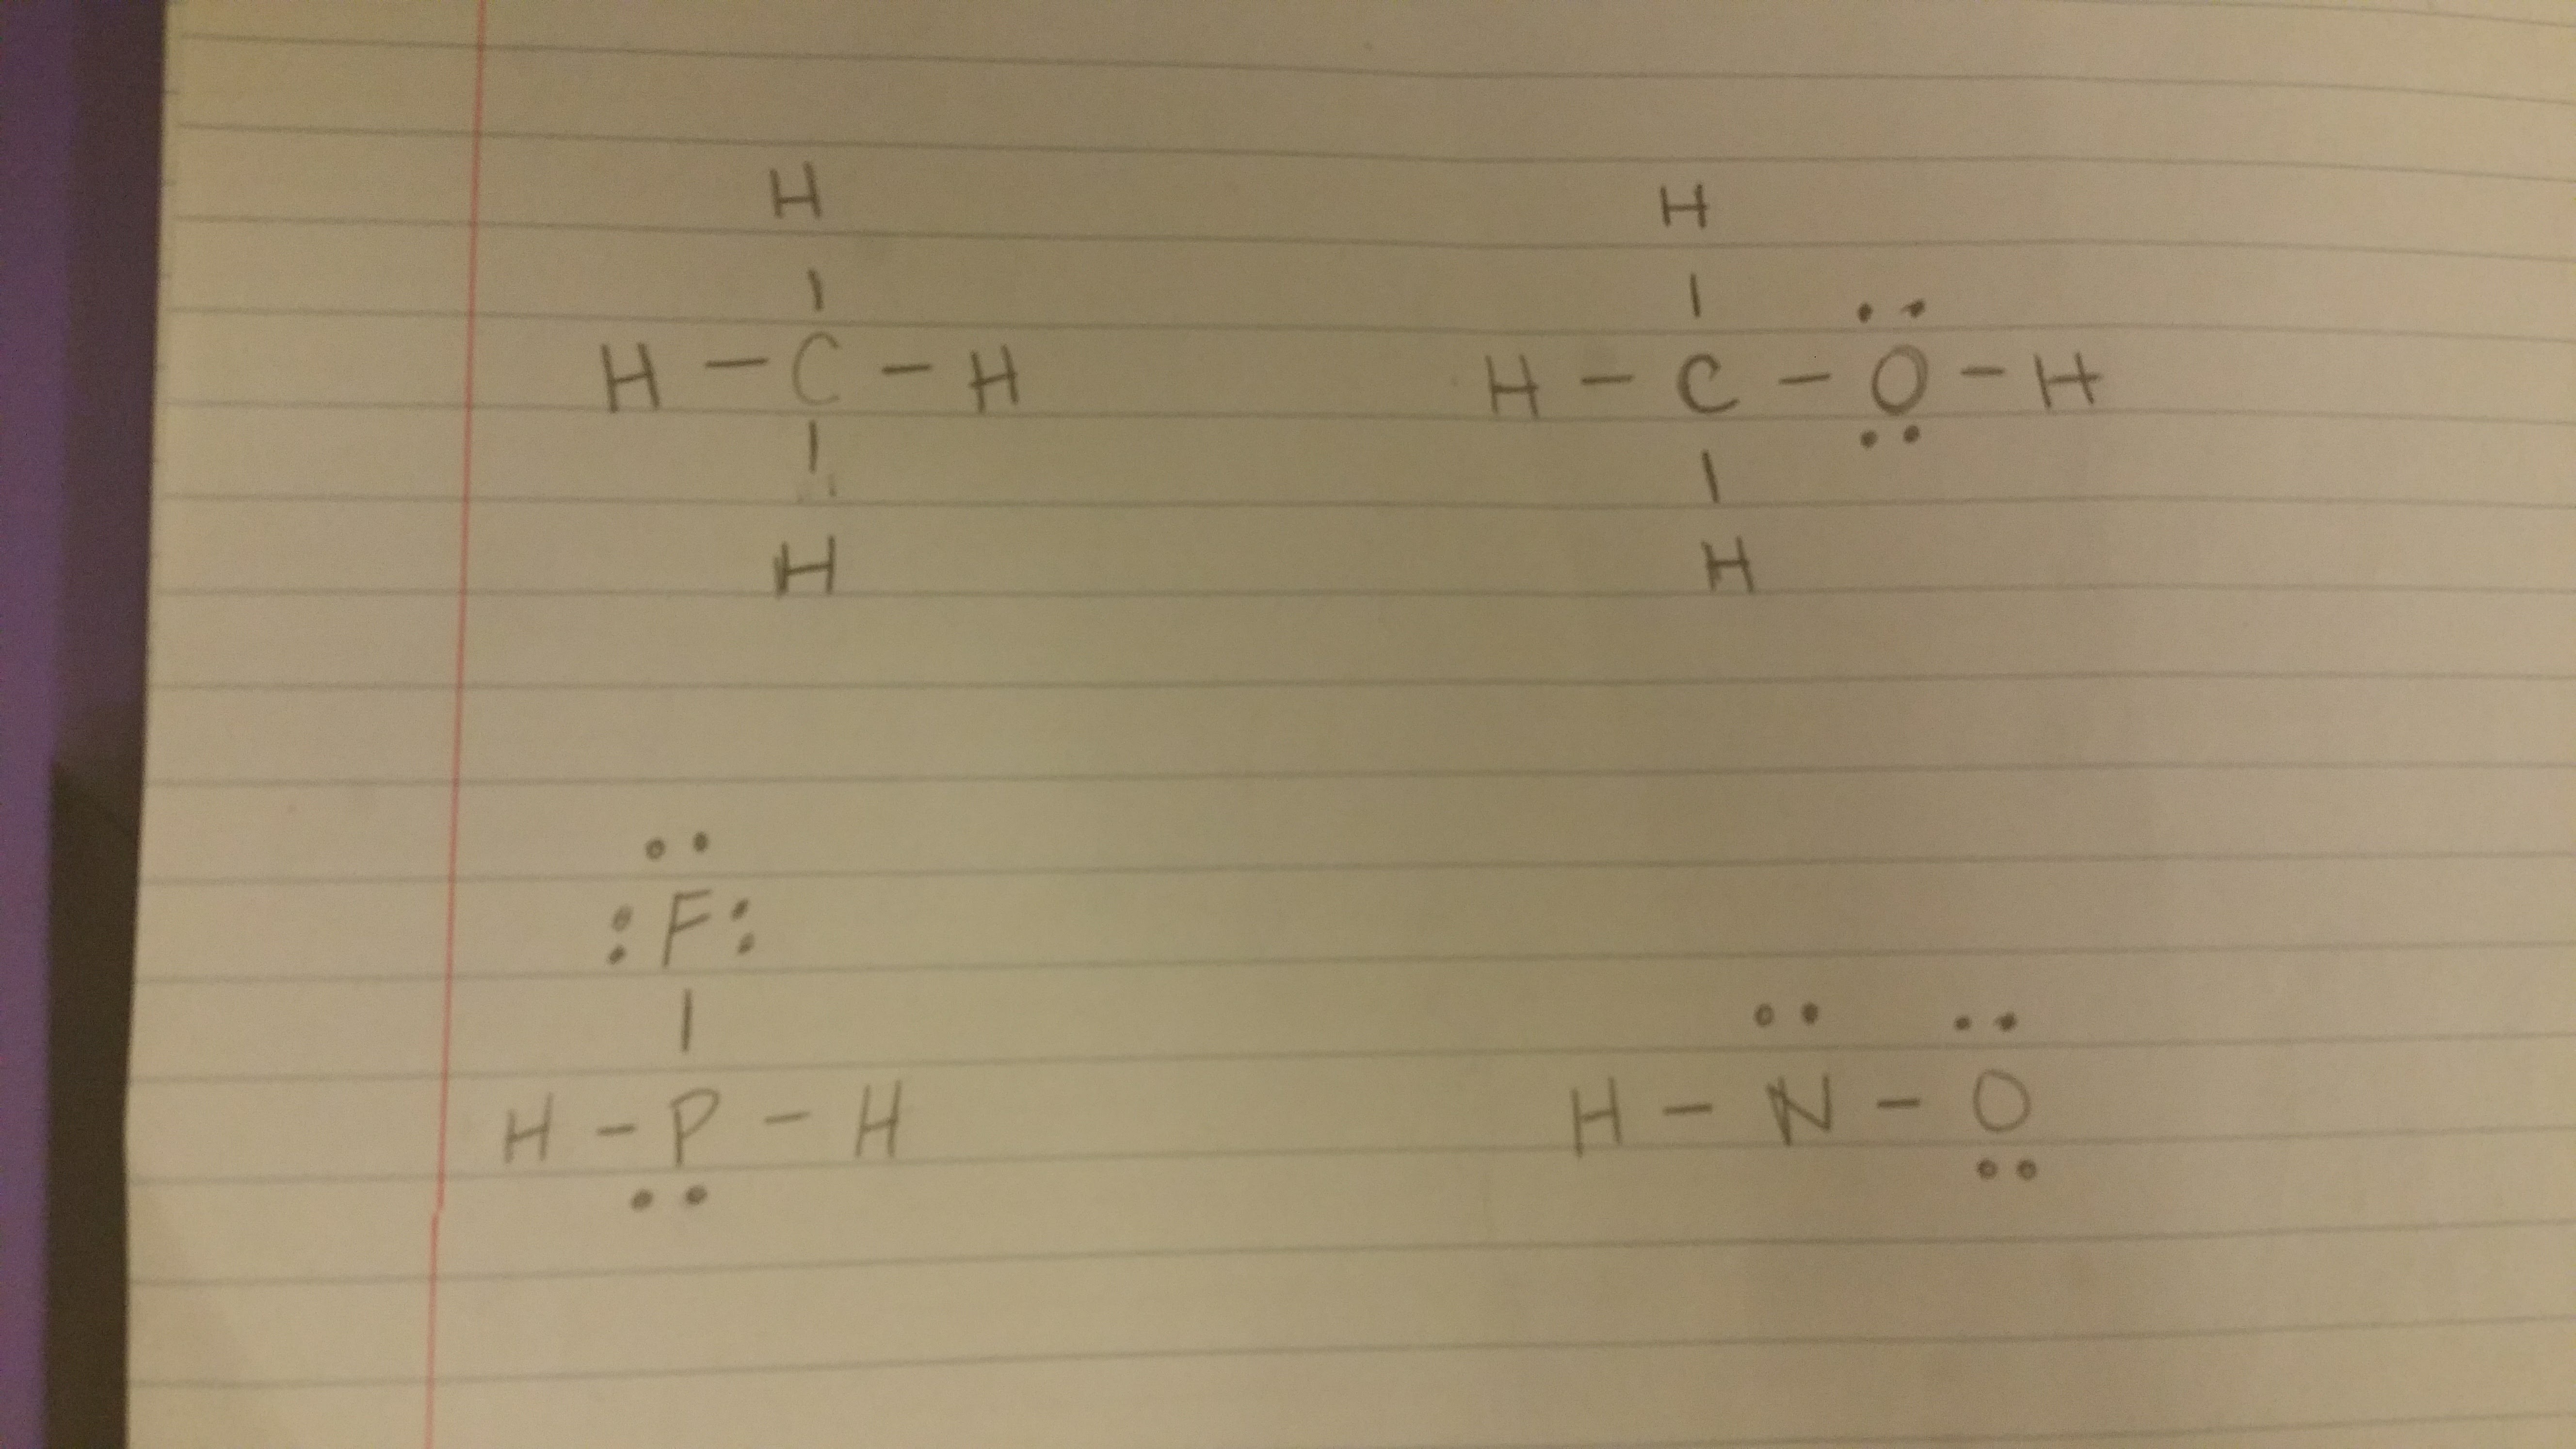 H H
| |
•• 
H – C – H H – C – O – H
••
| |
H H
••
:F:
|
•• ••
H – P – H H – N – O
•• ••